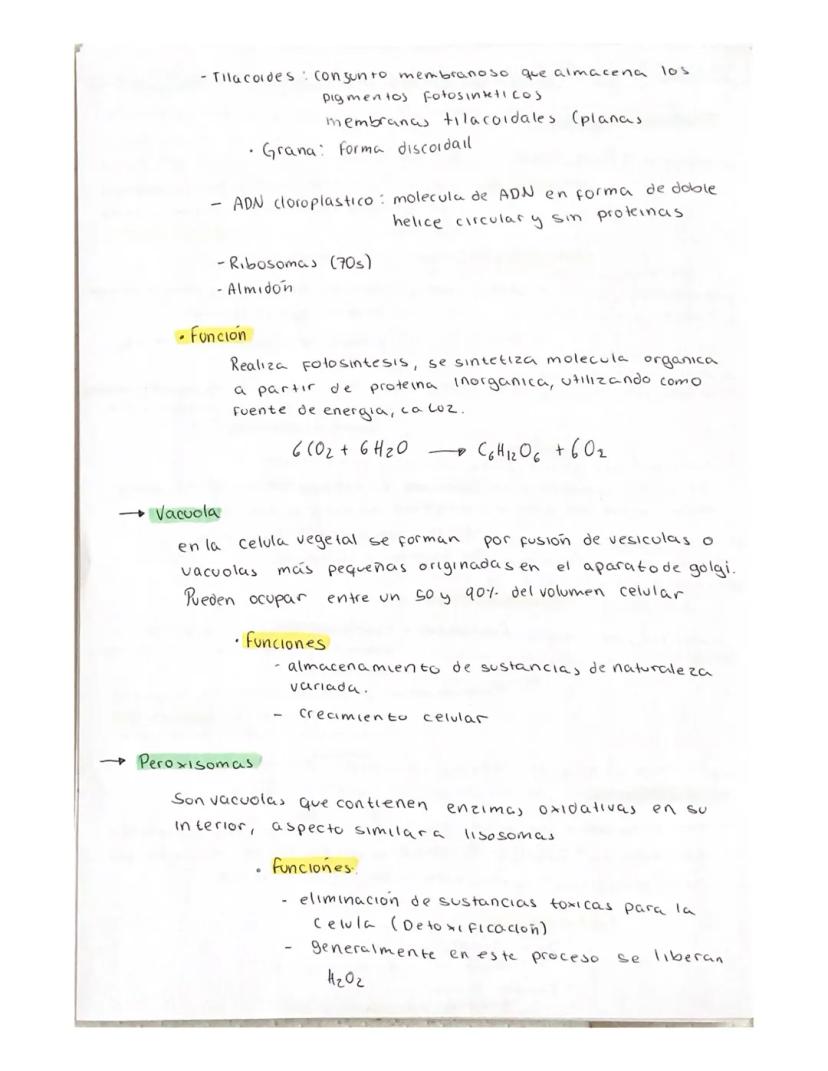 - Tilacoides : conjunto membranoso que almacena los
pigmentos fotosinteticos
membranas tilacoidales (planas
• Grana: forma discoidal
- ADN cloroplastico : molecula de ADN en forma de doble
helice circular y sin proteinas
- Ribosomas (70s)
- Almidón
• Función
Realiza fotosintesis, se sintetiza molecula organica
a partir de proteina inorganica, utilizando como
fuente de energia, la luz.
6 CO2 + 6 H2O → C6H12O6 + 6O2
→ Vacuola
en la celula vegetal se forman por fusión de vesiculas o
vacuolas más pequeñas originadas en el aparato de golgi.
Pueden ocupar entre un 50 y 90% del volumen celular
• Funciones
- almacenamiento de sustancias de naturaleza
variada.
- crecimiento celular
→ Peroxisomas
Son vacuolas que contienen enzimas oxidativas en su
interior, aspecto similar a lisosomas
• funciones.
- eliminación de sustancias toxicas para la
celula (Detoxificación)
- generalmente en este proceso se liberan
H2O2